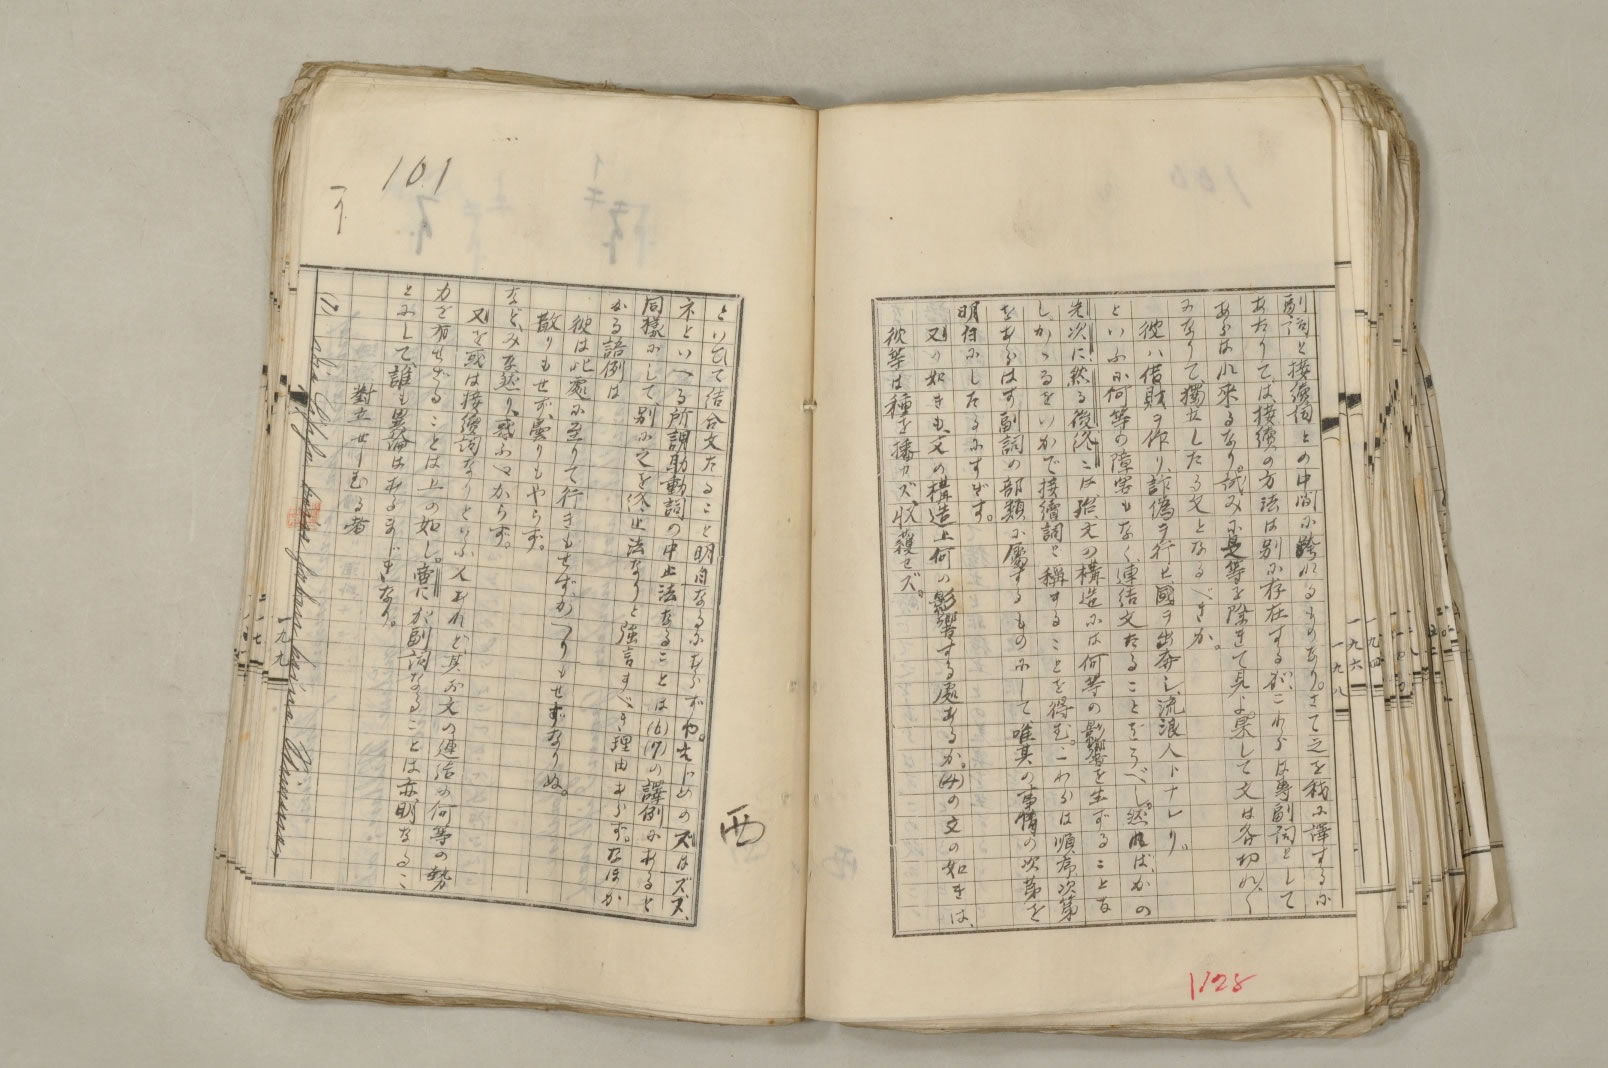 副詞と接續詞との中間に跨れるものあり。さて之を我に譯するに
あたりては、接續の方法は別に存在するが、これらは專副詞として
あらはれ來るなり。試みに是等を除きて見よ、果して文は各切れ〱
になりて獨立したる文となるべきか。
彼ハ借財ヲ作リ、詐僞ヲ行ヒ國ヲ出奔シ、流浪人トナレリ。
といふに何等の障害もなく、連結文たることをうべし。然れば、かの
先次に、然る後、終には、殆、文の構造には何等の影響を生ずることな
し。かゝるをいかで接續詞と稱することを得む。これらは順序次第
をあらはす副詞の部類に屬するものにして唯其の事情の次第を
明白にしたるにすぎず。
又の如きも、文の構造上何の影響する處あるか。(4)の文の如きは、
彼等は種を播カズ、收穫セズ。
一九八
一九六
一九四
1128
101
といひて結合文たること明白なるにあらずや。はじめのズはズズ、
ネといへる所謂助動詞の中止法なることは(6)(7)の譯例にあると
同樣にして別に之を終止法なりと強言すべき理由あらず。なほか
かる語例は
彼は此處に至りて行きもせずかへりもせずなりぬ。
散りもせず、曇りもやらず。
などみな然り、惑ふべからず。
又を或は接續詞なりといふ人あれど、其が文の連結の何等の勢
力を有せざることは上の如し。啻にが副詞なることは亦明なるこ
とにして、誰も異論はあるまじきなり。
對立せしむる者
(1)
一九九
西